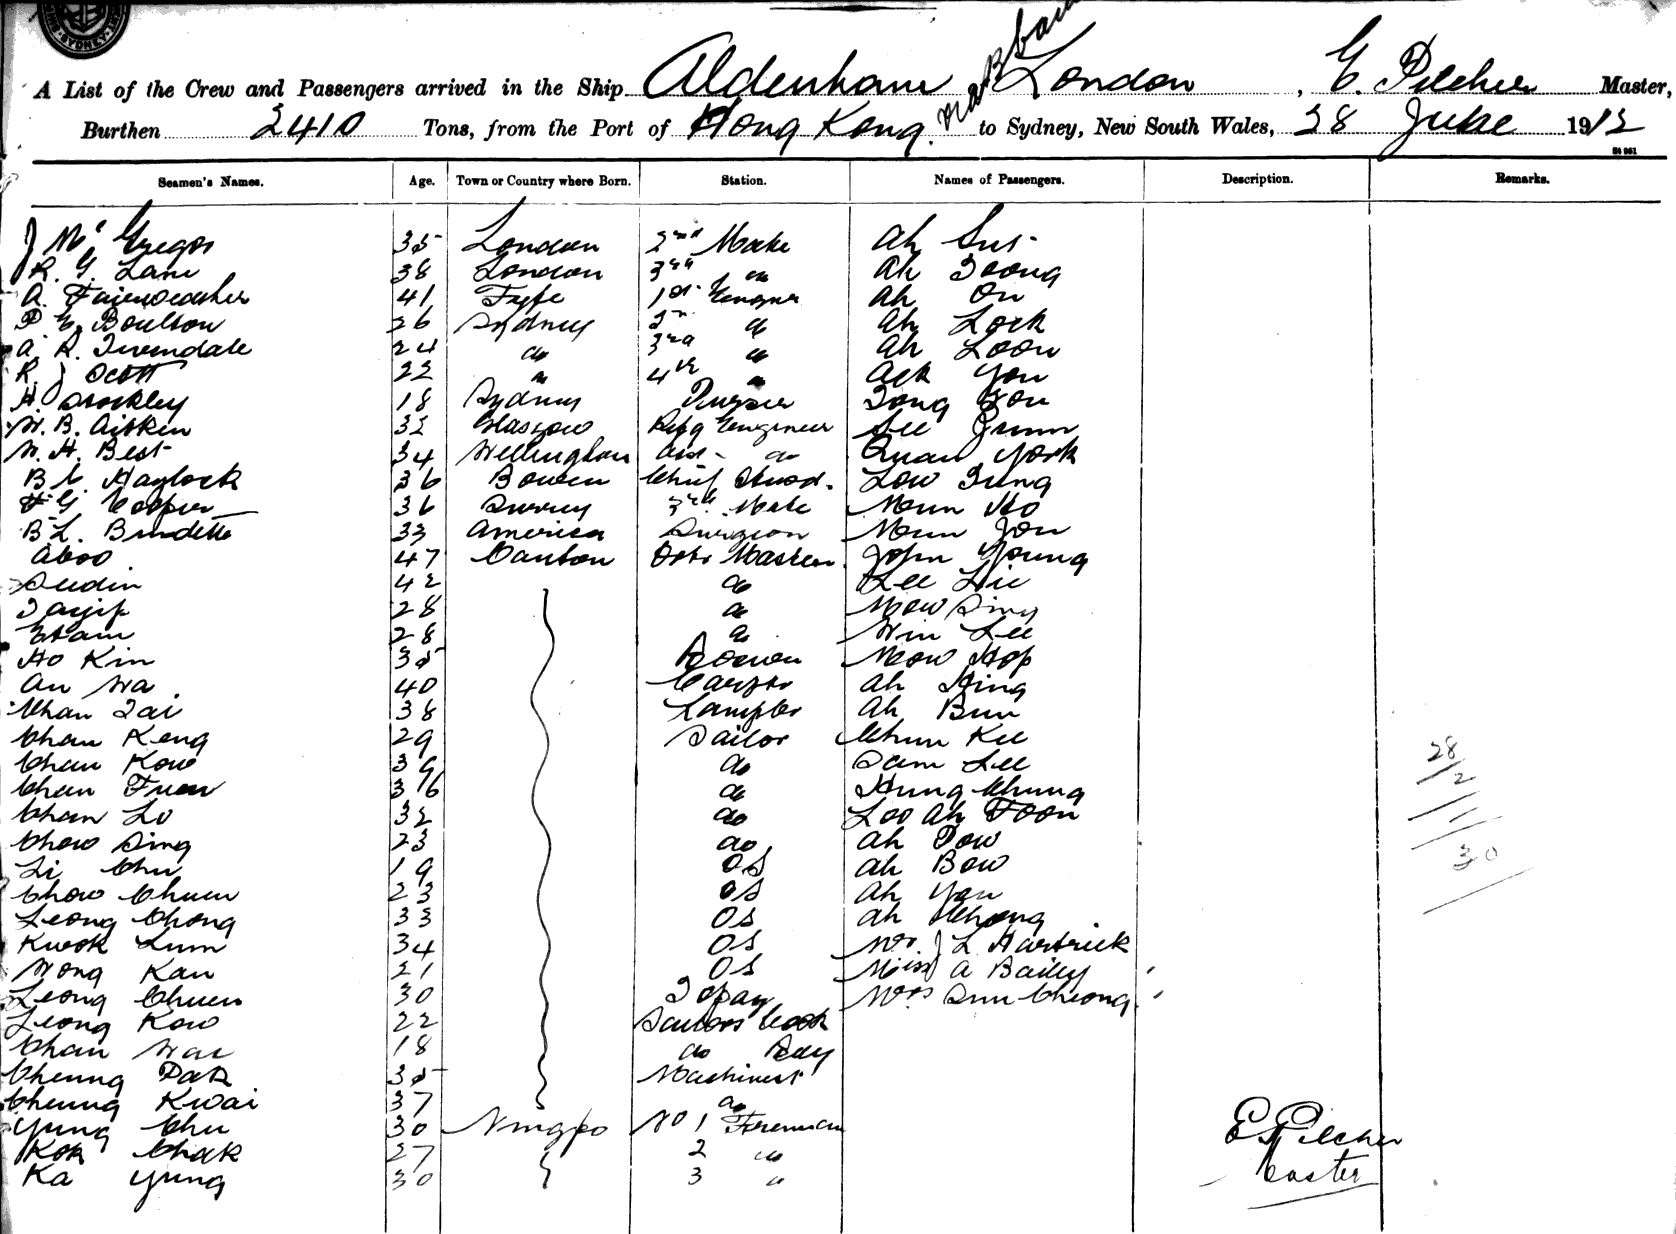 SYDNEY
A List of the Crew and Passengers arrived in the Ship Aldenham London, E. Pilcher Master,
Burthen 2410 Tons, from the Port of Hong Kong. via to Sydney, New South Wales, 28 June 1912
Seamen's Names. Age. Town or Country where Born. Station. Names of Passengers. Description. Remarks.
J McGregor 35 London 2nd Mate Ah Sui
R. G. Lane 38 London 3rd do Ah Toong
A. Fairweather 41 Fyfe 1st Engnr Ah On
P. E. Boulton 26 Sydney 2nd do Ah Lock
A. R. Tivendale 24 do 3rd do Ah Loon
R J Scott 22 " 4th do Ack You
H Brockley 18 Sydney Purser Tong You
W. B. Aitken 32 Glasgow Refg Engineer See
W. H. Best 34 Wellington Asst do Quan York
B. C. Haylock 36 Bowen Chief Stwd. Low Tung
G Cooper 36 Surrey 3rd Mate Mun Ho
B L. Burdette 33 America Surgeon Mun Jou
Aboo 47 Canton Qotr Master John Young
Dudin 42 do Lee Lie
Tayip 28 do Mow Sing
Etam 28 do Win Lee
Ho Kin 35 Bosun Mow Hop
Au Wa 40 Carptr Ah Hing
Chan Tai 38 Lamptr Ah Bun
Chan Keng 29 Sailor Chun Kee
Chan Kow 39 do Sam Lee
Chan Fuen 36 do Hung Chung
Chan Lo 32 do Loo Ah Foon
Chow Sing 23 do Ah Pow
Li Chu 19 OS Ah Bow
Chow Chuen 23 OS Ah You
Leong Chong 33 OS Ah Chong
Kwok Lum 34 OS Mr. J L Hartrick
Wong Kau 21 OS Miss A Bailey
Leong Chuen 30 Topay Mrs Sun Cheong
Leong Kow 22 Sailors Cook
Chan Wai 18 do Boy
Cheung Pak 35 Machinist
Cheung Kwai 37 do
Yung Chu 30 Ningpo No 1 Fireman
Kok Chak 27 2 do
Ka Yung 30 3 "
28
2
30
E Pilcher
Master